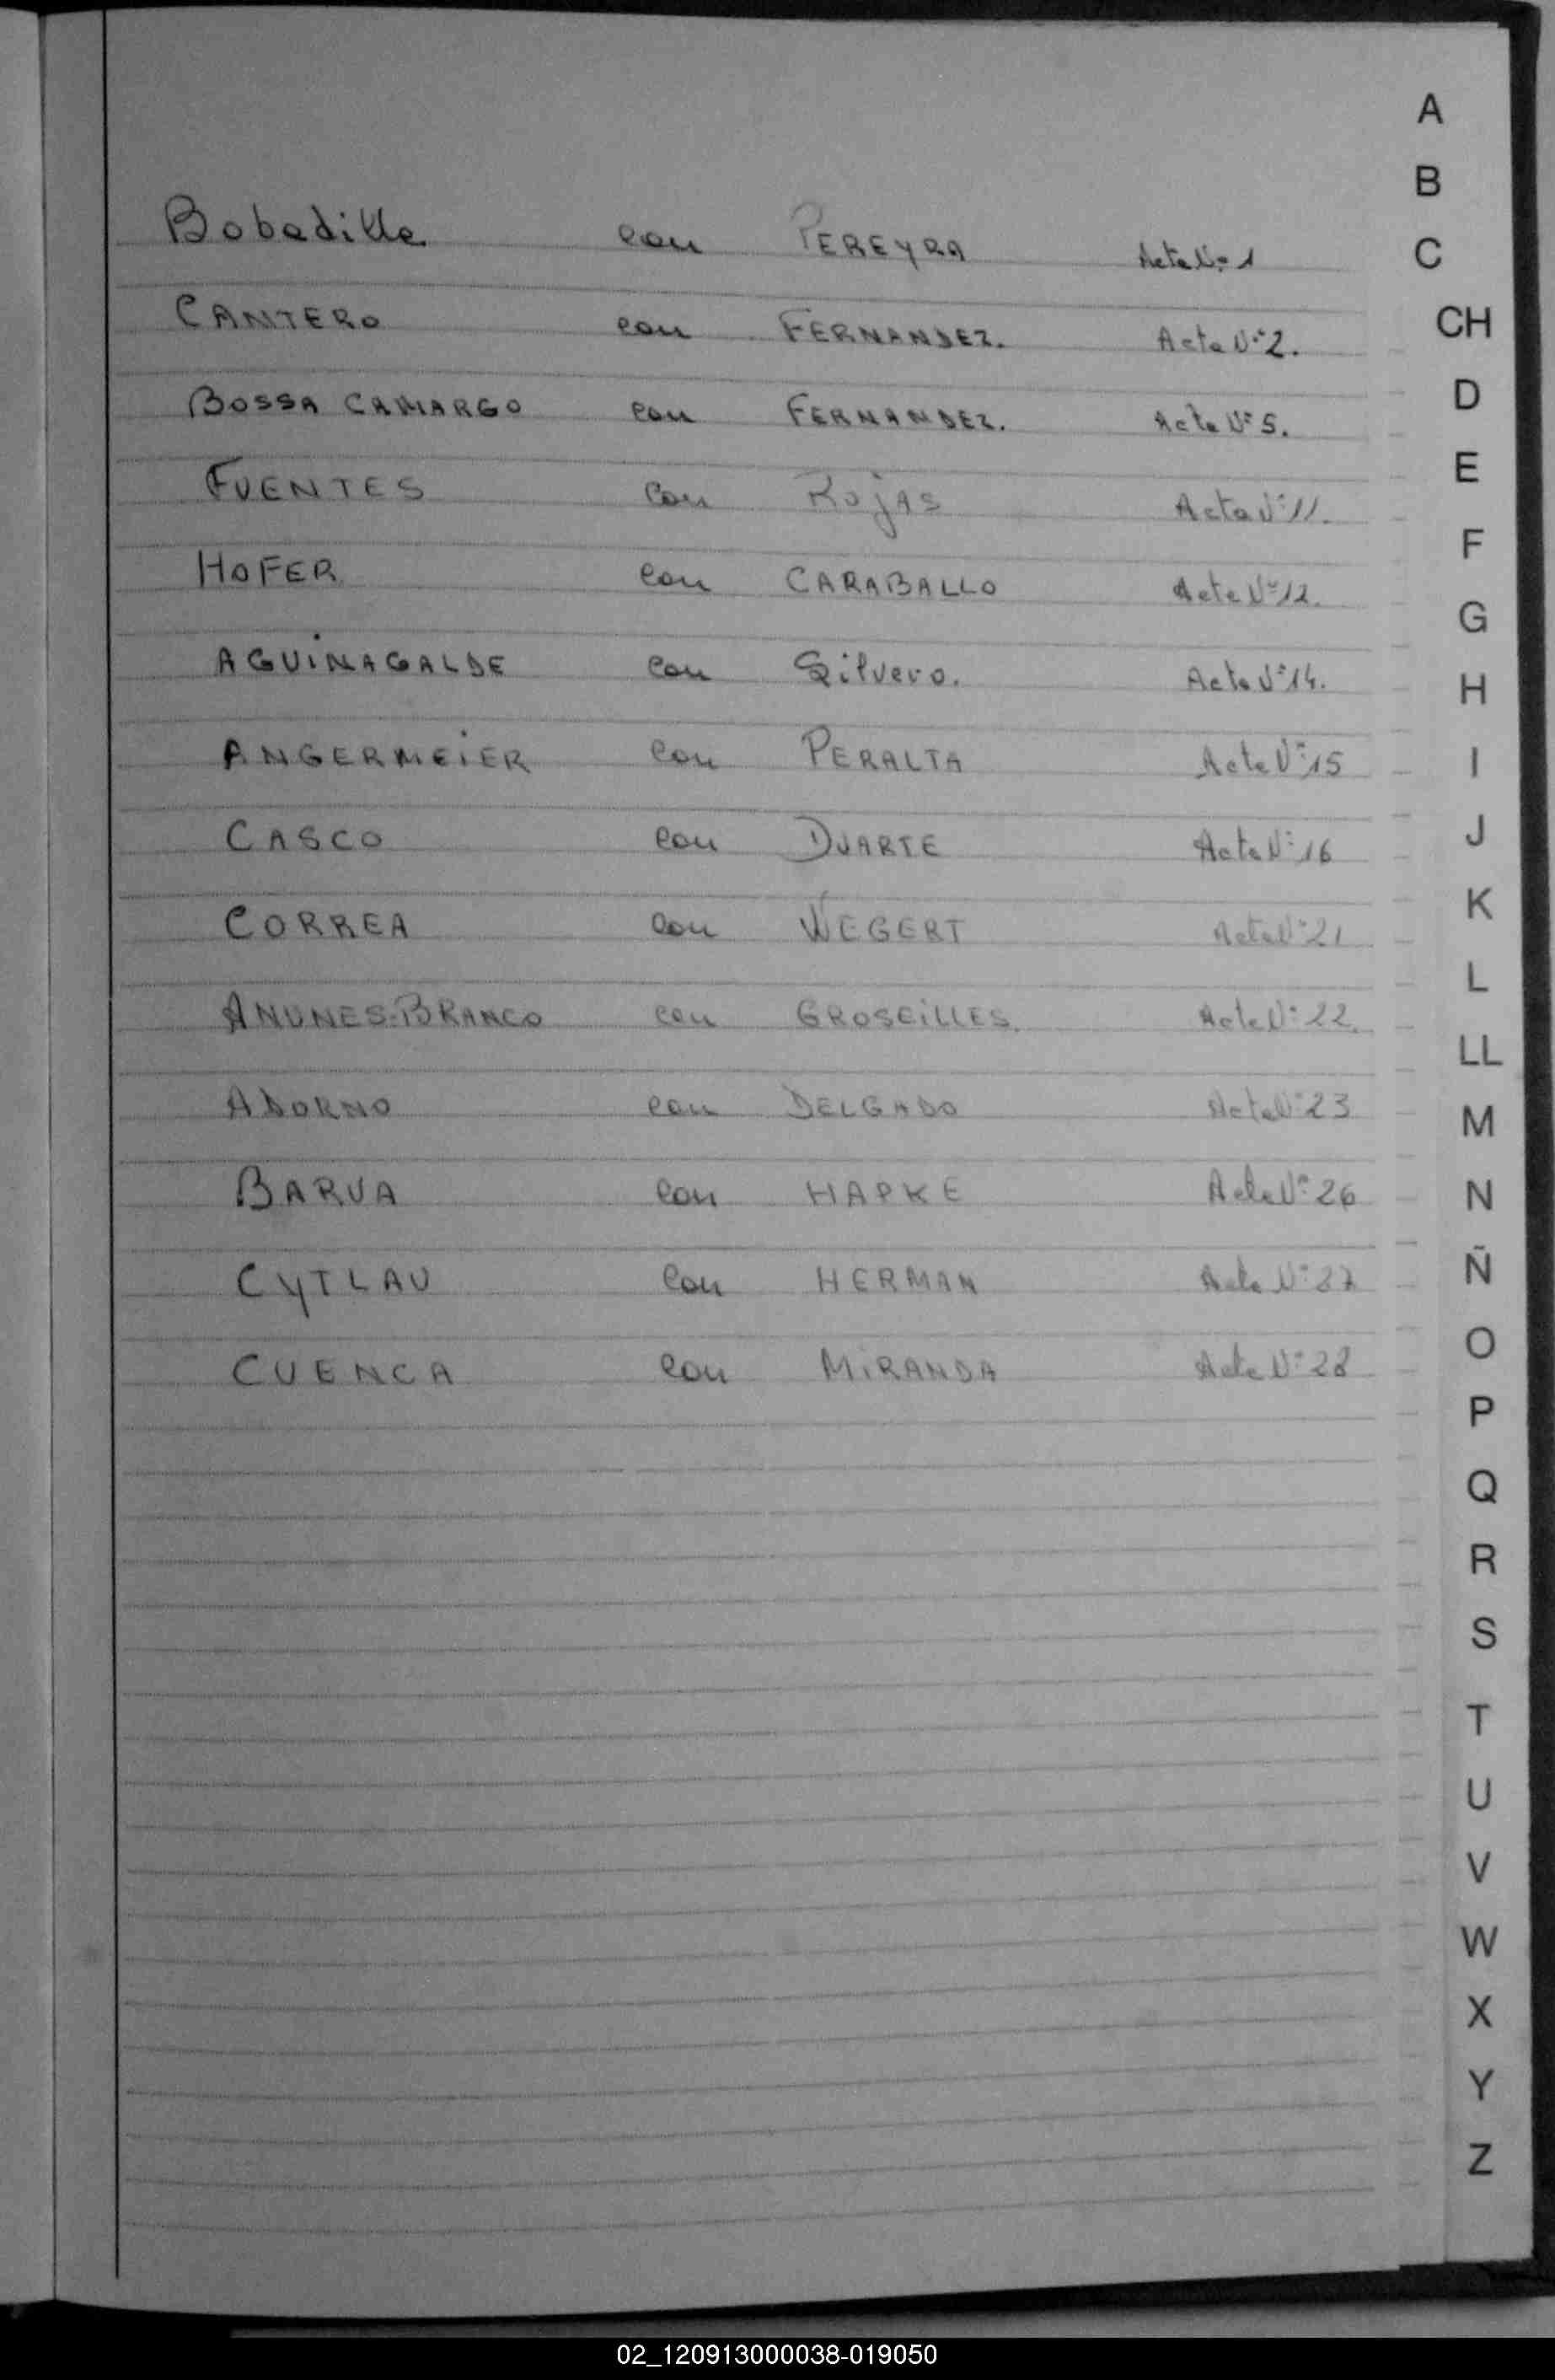 A
B
Bobadilla con PEREYRA Acta Nº 1
C
CANTERO con FERNANDEZ. Acta Nº 2.
CH
BOSSA CAMARGO con FERNANDEZ. Acta Nº 5.
D
E
FUENTES con Rojas Acta Nº 11.
F
HOFER con CARABALLO Acta Nº 12.
G
AGUINAGALDE con Silvero. Acta Nº 14.
H
ANGERMEIER con PERALTA Acta Nº 15
I
CASCO con DUARTE Acta Nº 16
J
K
CORREA con WEGERT Acta Nº 21
L
ANUNES-BRANCO con GROSEILLES. Acta Nº 22.
LL
ADORNO con DELGADO Acta Nº 23
M
BARUA con HAPKE Acta Nº 26
N
CYTLAU con HERMAN Acta Nº 27
Ñ
CUENCA con MIRANDA Acta Nº 28
O
P
Q
R
S
T
U
V
W
X
Y
Z
02_120913000038-019050